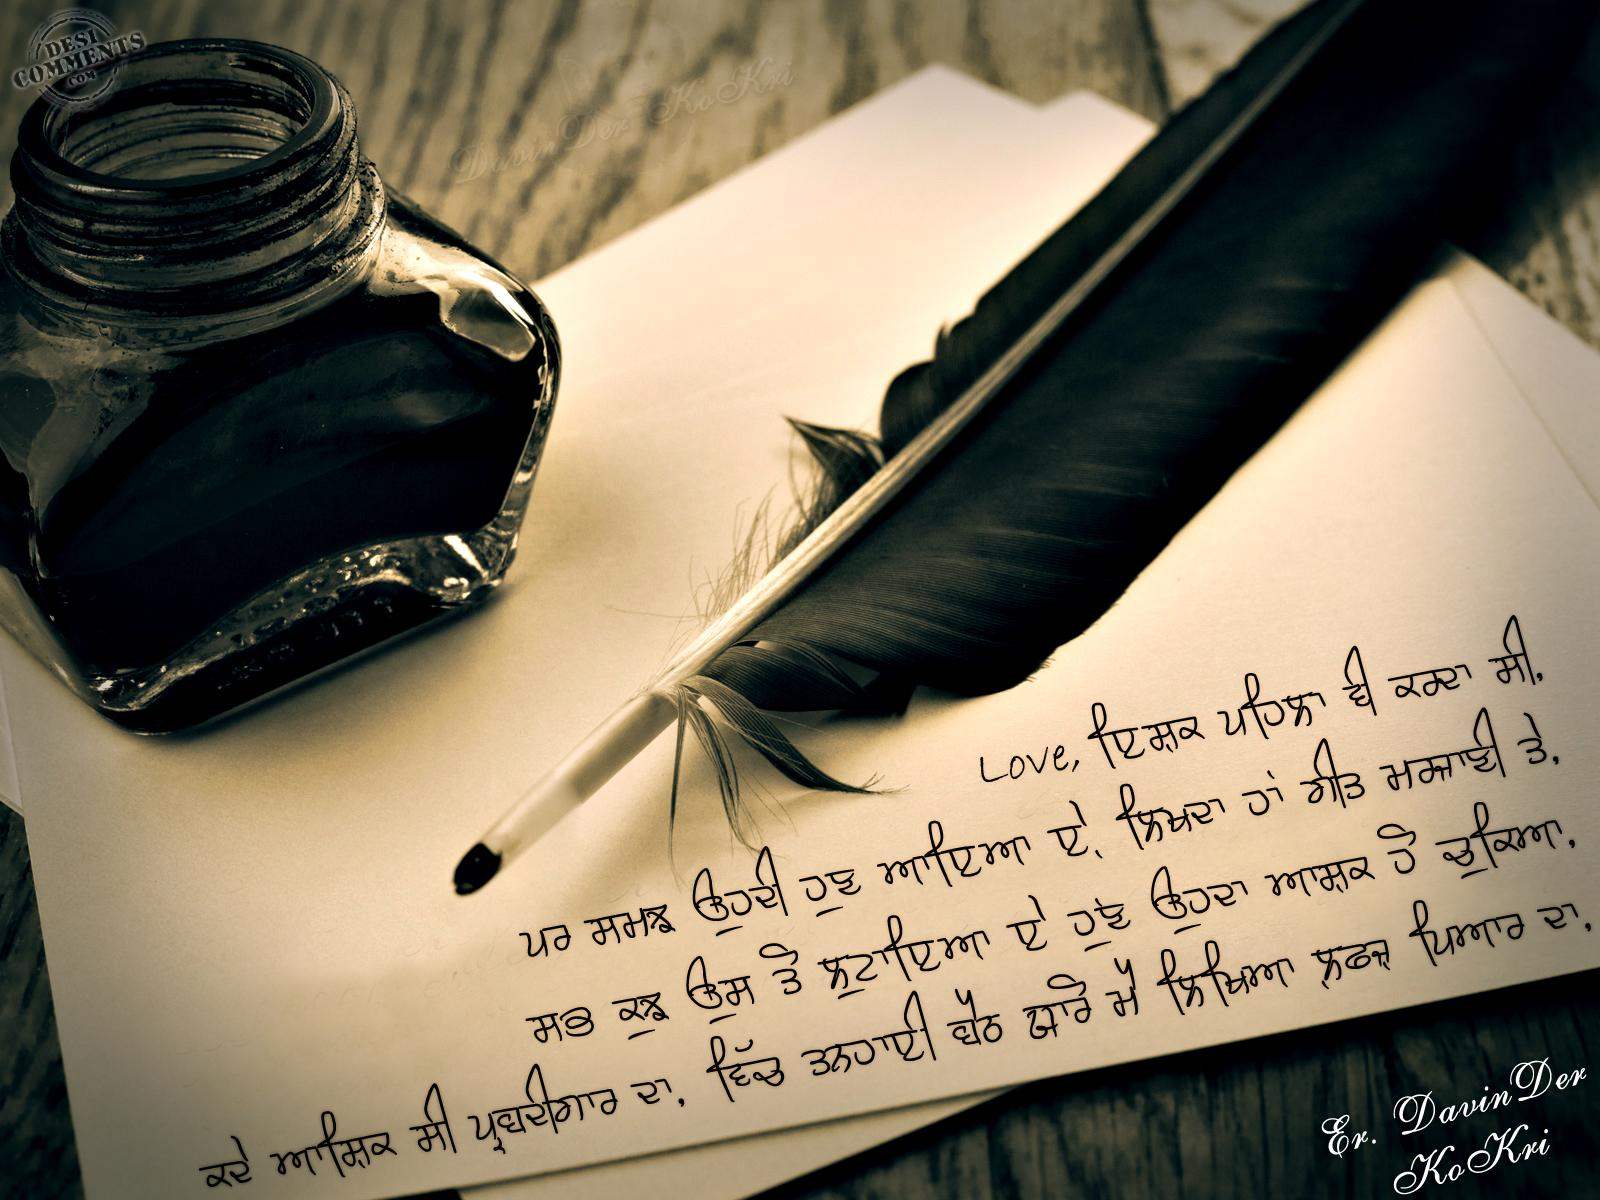 DESI COMMENTS .COM
DavinDer KoKri
Love, ਇਸ਼ਕ ਪਹਿਲਾ ਵੀ ਕਰਦਾ ਸੀ,
ਪਰ ਸਮਝ ਉਹਦੀ ਹੁਣ ਆਇਆ ਏ, ਲਿਖਦਾ ਹਾਂ ਗੀਤ ਮਰਜਾਣੀ ਤੇ,
ਸਭ ਕੁਝ ਉਸ ਤੇ ਲੁਟਾਇਆ ਏ ਹੁਣ ਉਹਦਾ ਆਸ਼ਕ ਹੋ ਚੁਕਿਆ,
ਕਦੇ ਆਸ਼ਿਕ ਸੀ ਪ੍ਰਵਦੀਗਾਰ ਦਾ, ਵਿੱਚ ਤਨਹਾਈ ਬੈਠ ਯਾਰੋ ਮੈਂ ਲਿਖਿਆ ਲਫਜ਼ ਪਿਆਰ ਦਾ,
Er. DavinDer
KoKri